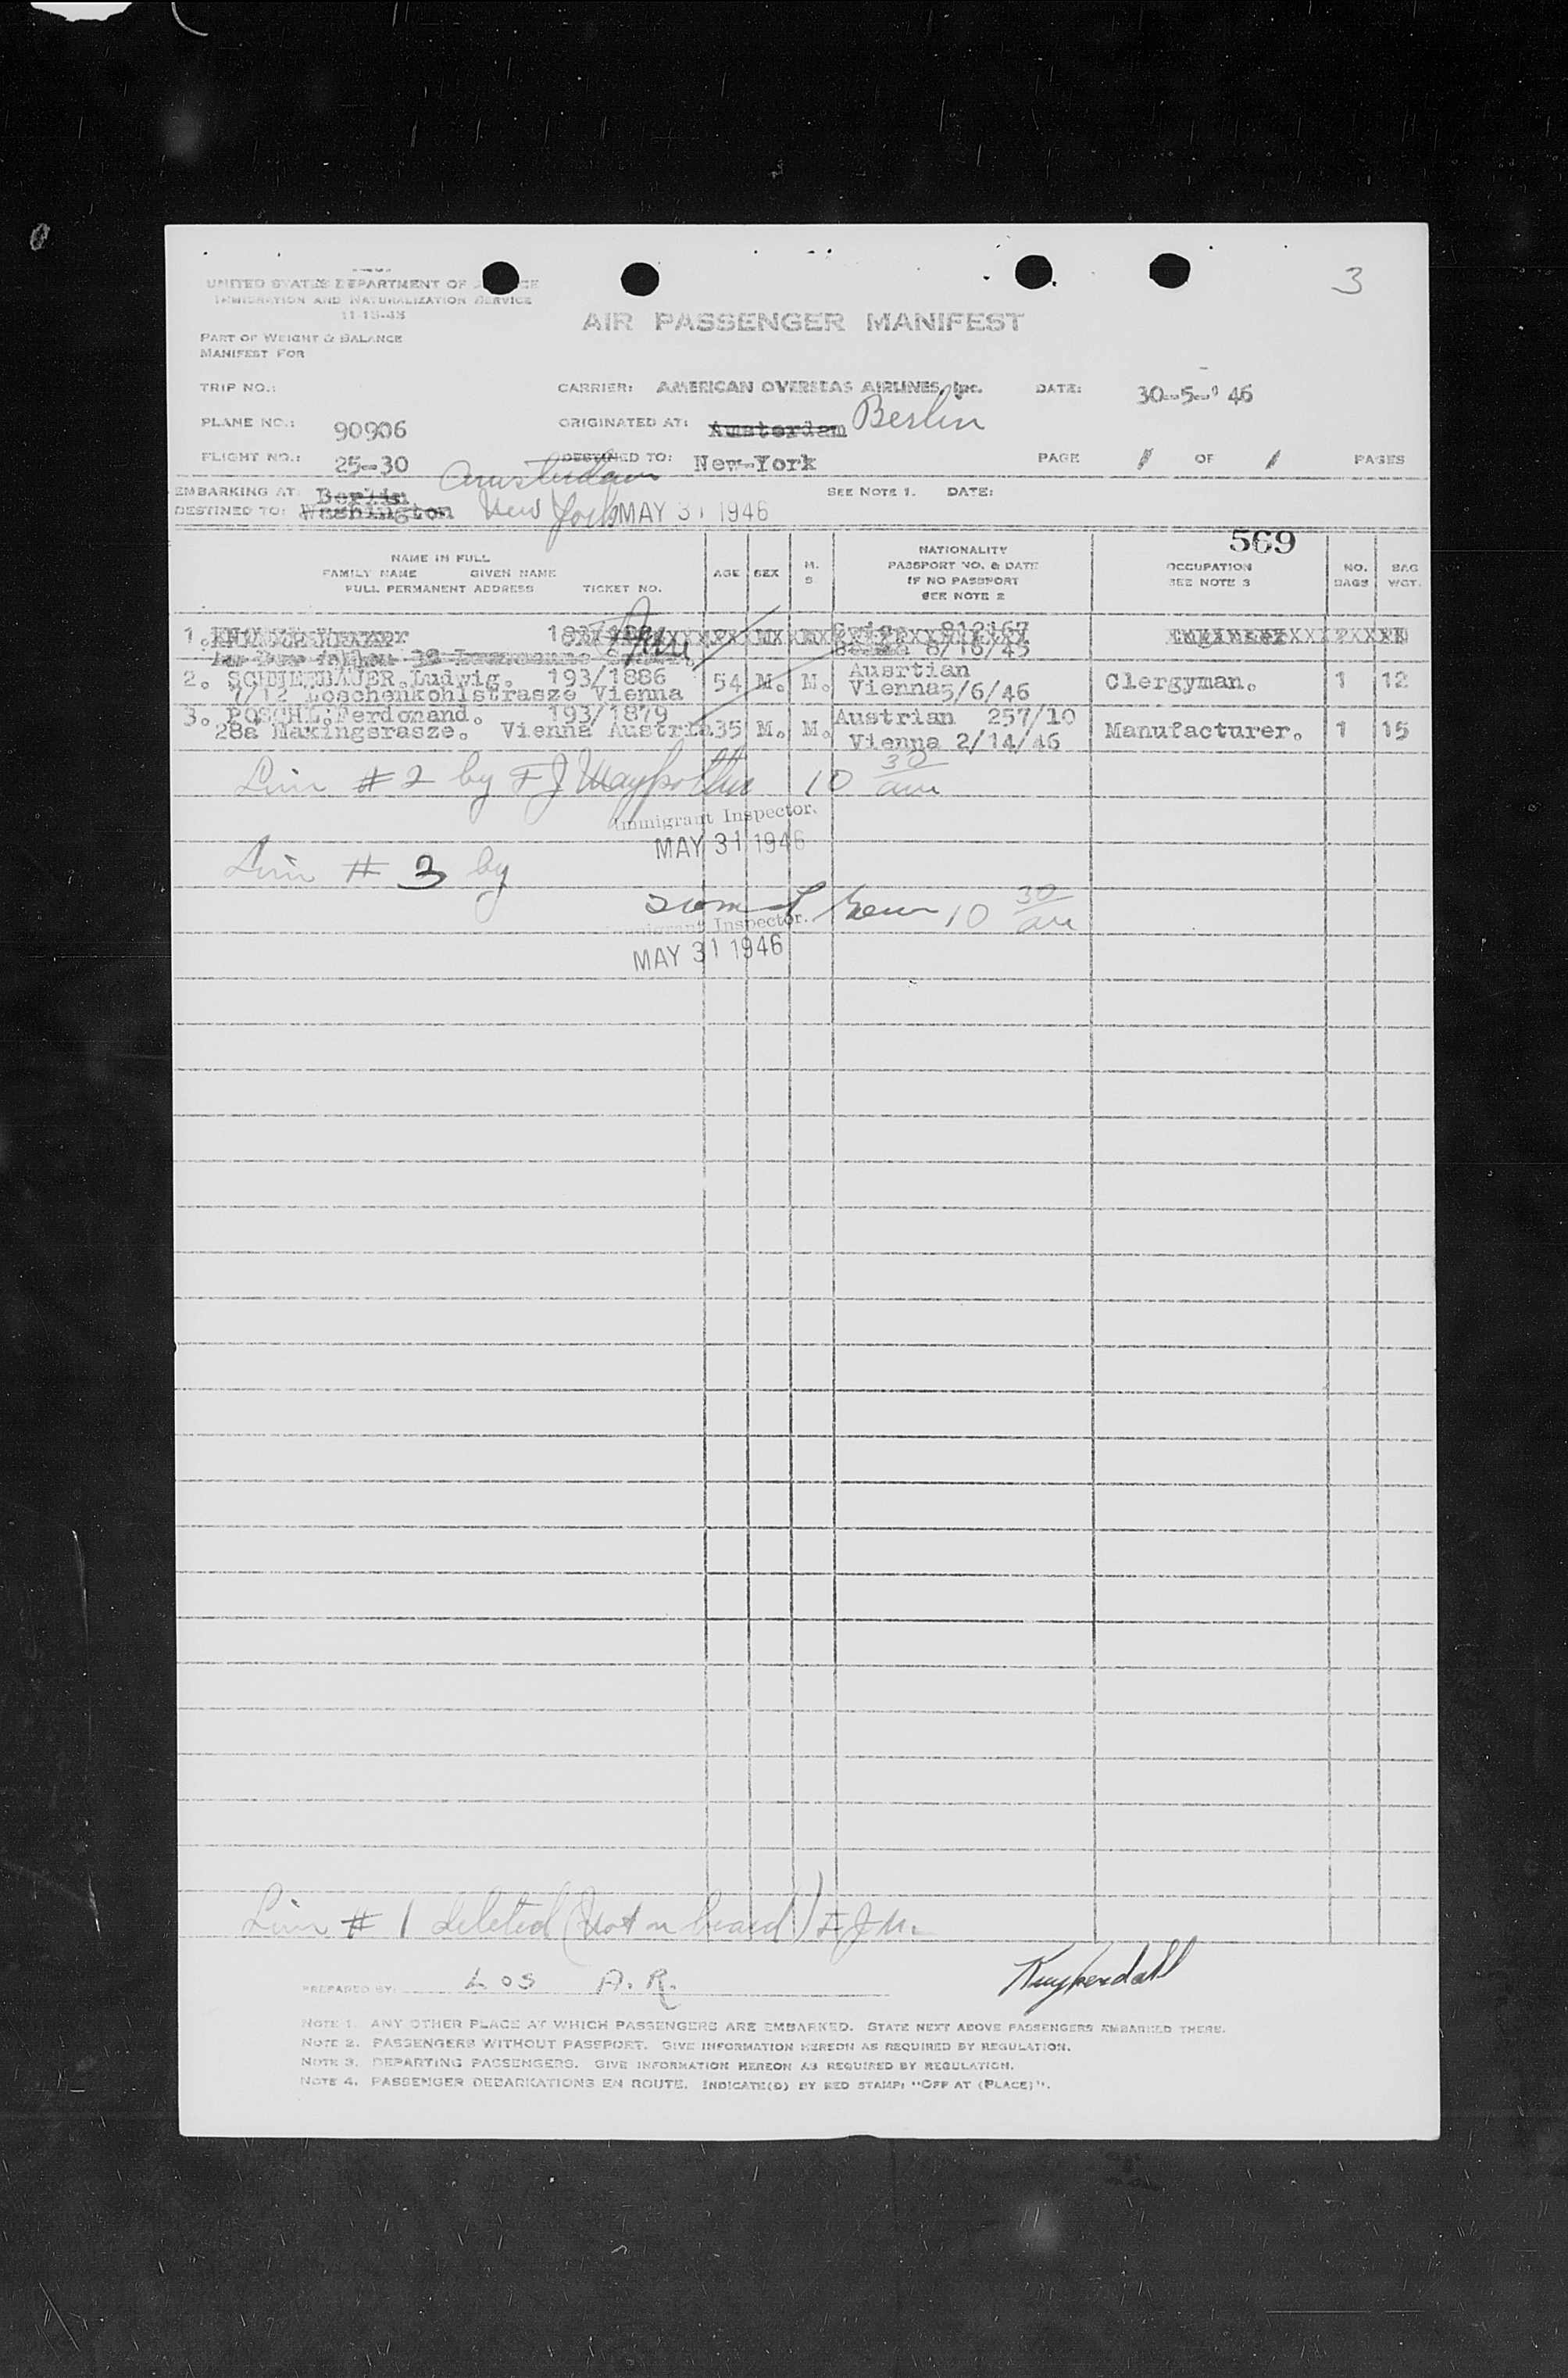 3
UNITED STATES DEPARTMENT OF
IMMIGRATION AND NATURALIZATION SERVICE
11-15-43
AIR PASSENGER MANIFEST
PART OF WEIGHT & BALANCE
MANIFEST FOR
TRIP NO.: CARRIER: AMERICAN OVERSEAS AIRLINES, Inc. DATE: 30-5-'46
PLANE NO.: 90906 ORIGINATED AT: Amsterdam Berlin
FLIGHT NO.: 25-30 DESTINED TO: New-York PAGE 1 OF 1 PAGES
EMBARKING AT: Berlin Amsterdam SEE NOTE 1. DATE:
DESTINED TO: Washington New York MAY 31 1946
569
NAME IN FULL
FAMILY NAME GIVEN NAME
FULL PERMANENT ADDRESS TICKET NO.
AGE SEX M. S
NATIONALITY
PASSPORT NO. & DATE
IF NO PASSPORT
SEE NOTE 2
OCCUPATION
SEE NOTE 3
NO. BAGS
BAG WGT.
1. 812167
8/16/45
2. Ludwig. 193/1886 54 M. M. Ausrtian Clergyman. 1 12
7/12 Loschenkohlstrasze Vienna Vienna 5/6/46
3. POSCHL. Ferdonand. 193/1879 35 M. M. Austrian 257/10 Manufacturer. 1 15
28a Makingsrasze. Vienna Austria Vienna 2/14/46
Line # 2 by F J 10 30 am
Immigrant Inspector.
MAY 31 1946
Line # 3 by
10 30 am
Immigrant Inspector.
MAY 31 1946
Line # 1 deleted (Not on board) F.J.M.
PREPARED BY: Los A.R. Kuykendall
NOTE 1. ANY OTHER PLACE AT WHICH PASSENGERS ARE EMBARKED. STATE NEXT ABOVE PASSENGERS EMBARKED THERE.
NOTE 2. PASSENGERS WITHOUT PASSPORT. GIVE INFORMATION HEREON AS REQUIRED BY REGULATION.
NOTE 3. DEPARTING PASSENGERS. GIVE INFORMATION HEREON AS REQUIRED BY REGULATION.
NOTE 4. PASSENGER DEBARKATIONS EN ROUTE. INDICATE(D) BY RED STAMP: "OFF AT (PLACE)".